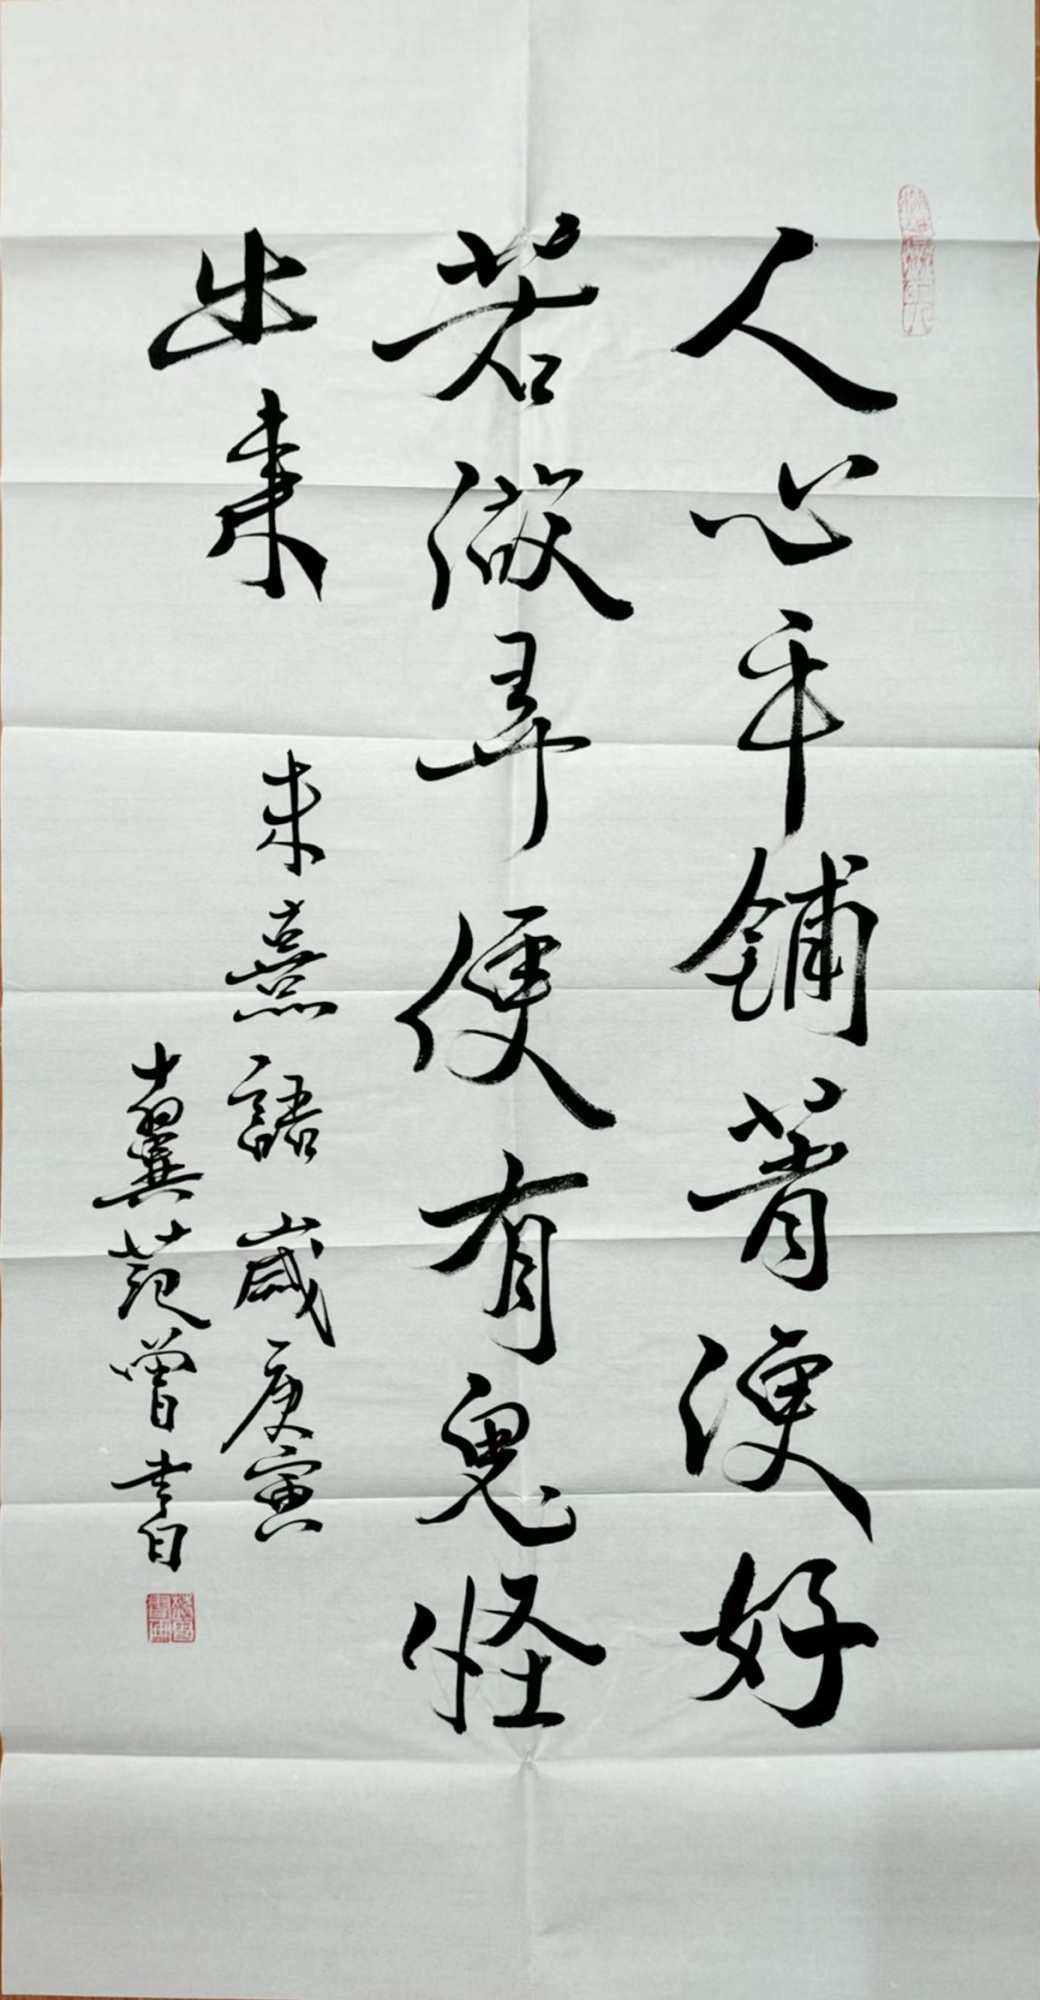 人心平铺着便好
若做弄便有鬼怪
出来
朱熹語歲庚寅
十翼范曾書